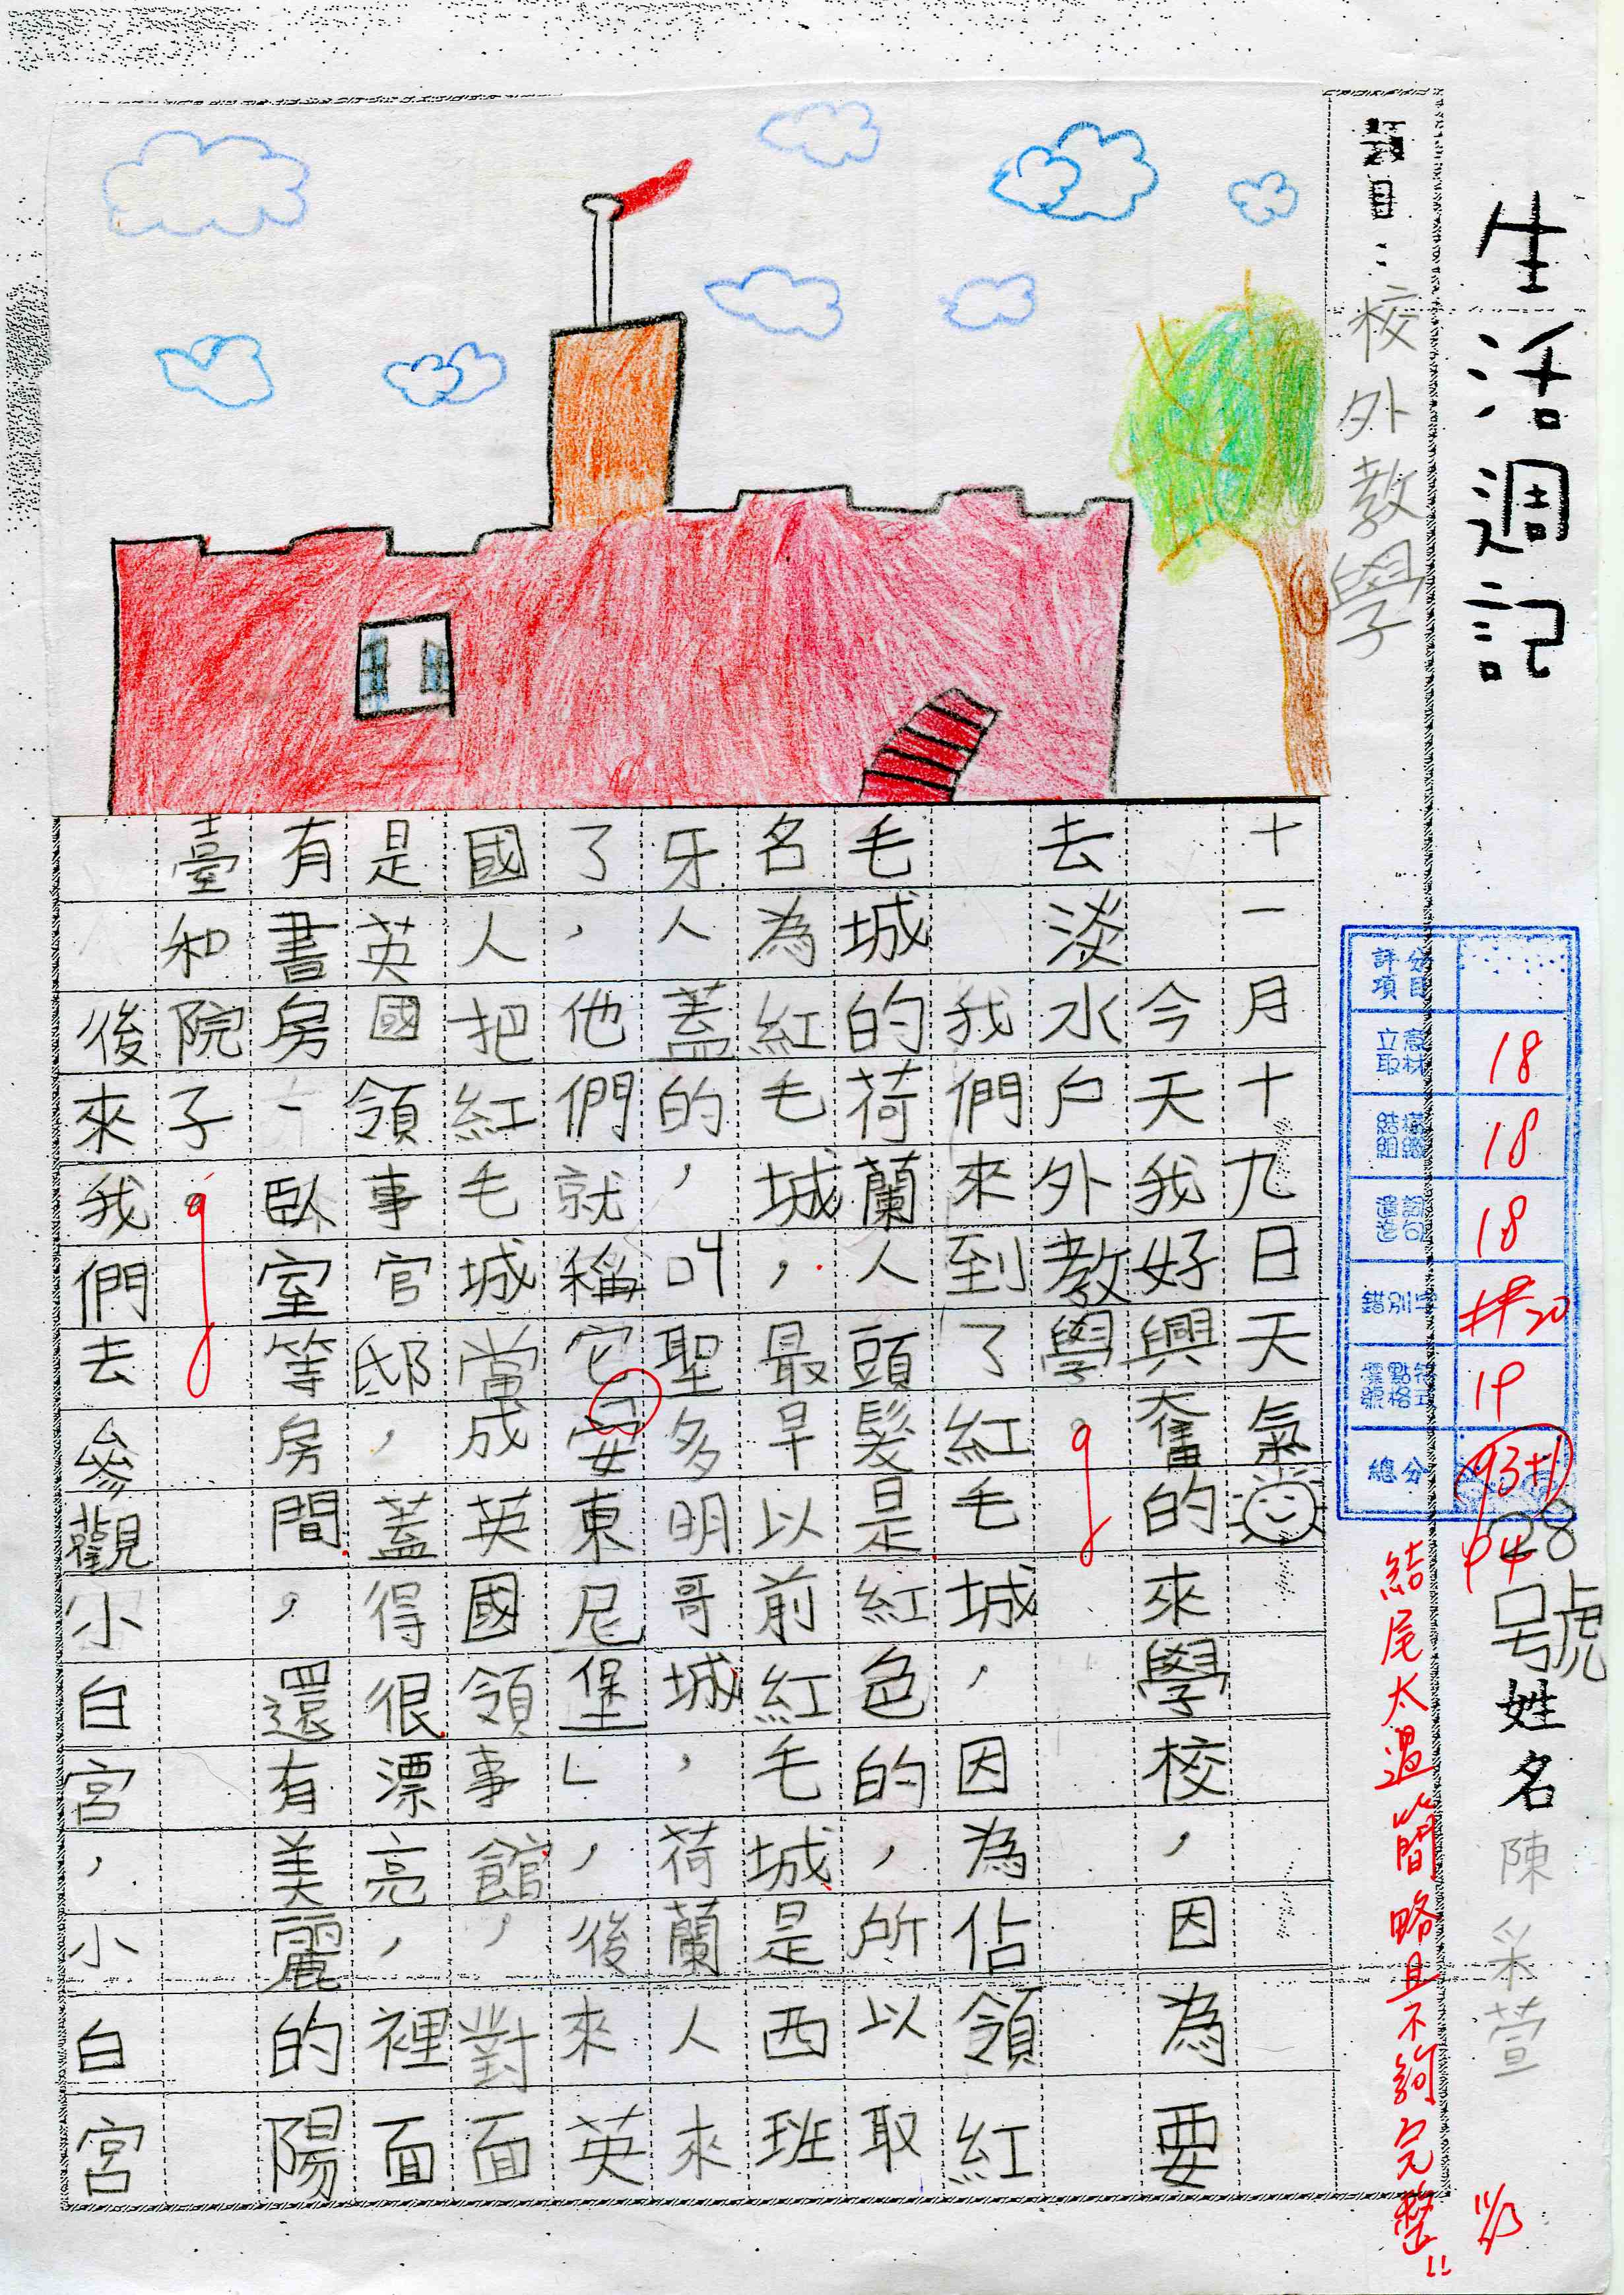 生活週記
題目：校外教學
28號姓名陳采萱
十一月十九日天氣
今天我好興奮的來學校，因為要
去淡水戶外教學。
我們來到了紅毛城，因為佔領紅
毛城的荷蘭人頭髮是紅色的，所以取
名為紅毛城，最早以前紅毛城是西班
牙人蓋的，叫聖多明哥城，荷蘭人來
了，他們就稱它安東尼堡」，後來英
國人把紅毛城當成英國領事館，對面
是英國領事官邸，蓋得很漂亮，裡面
有書房、臥室等房間，還有美麗的陽
臺和院子。
後來我們去參觀小白宮，小白宮
評分項目
立意取材 18
結構組織 18
18
錯別字 20
標點符號格式 19
總分 93+1
94
結尾太過簡略且不夠完整!!
11/23